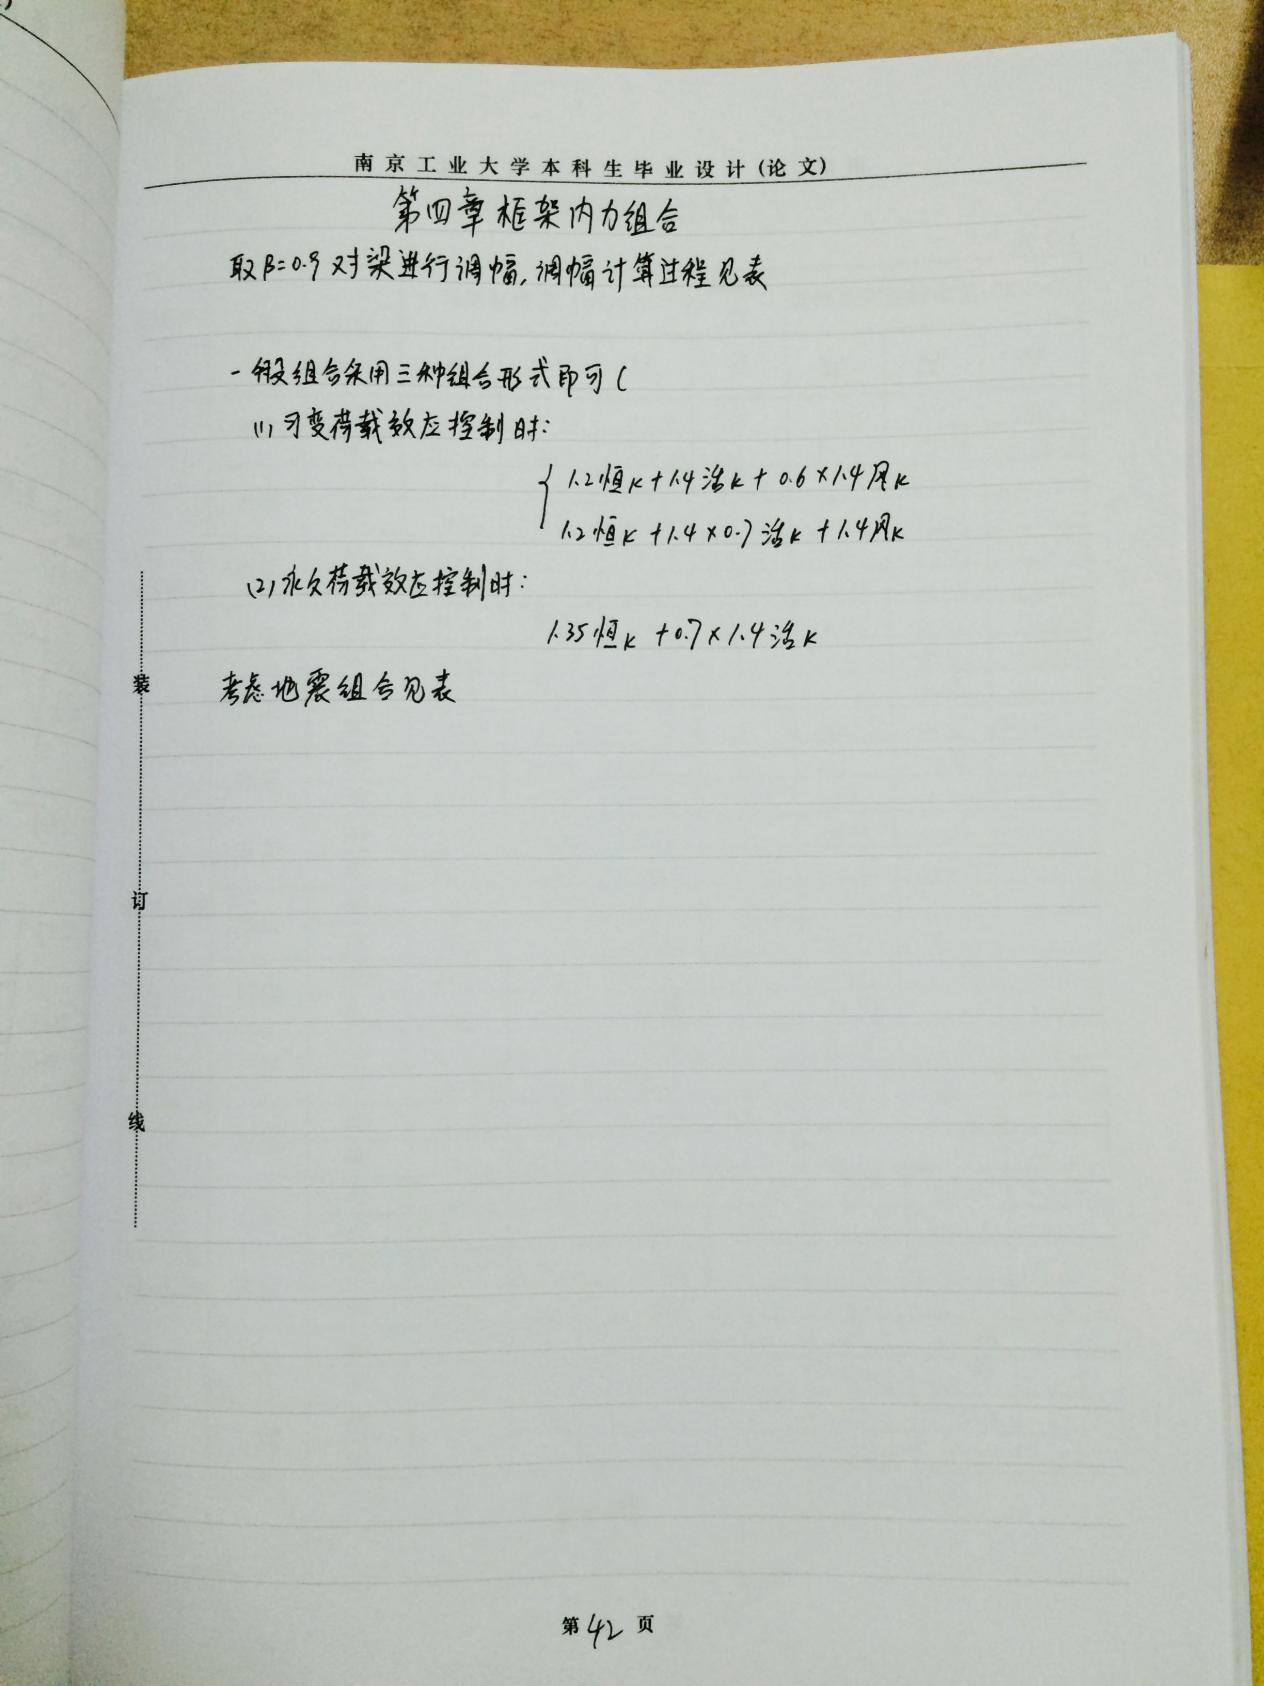 南京工业大学本科生毕业设计(论文)
第四章框架内力组合
取β=0.9对梁进行调幅,调幅计算过程见表
一般组合采用三种组合形式即可(
(1)可变荷载效应控制时:
1.2恒K+1.4活K+0.6×1.4风K
1.2恒K+1.4×0.7活K+1.4风K
(2)永久荷载效应控制时:
1.35恒K+0.7×1.4活K
考虑地震组合见表
装
订
线
第42页